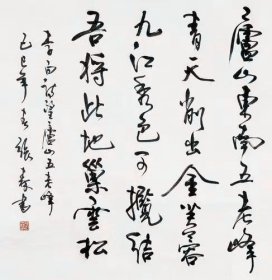 廬山東南五老峰
青天削出金芙蓉
九江秀色可攬結
吾將此地巢雲松
李白詩望廬山五老峰
乙巳年春 張森書